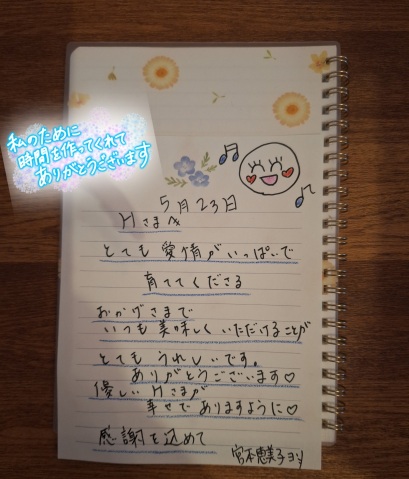 私のために
時間を作ってくれて
ありがとうございます
5月23日
Hさまへ
とても愛情がいっぱいで
育ててくださる
おかげさまで
いつも美味しくいただけることが
とてもうれしいです。
ありがとうございます♡
優しいHさまが
幸せでありますように♡
感謝を込めて
宮本恵美子ヨリ